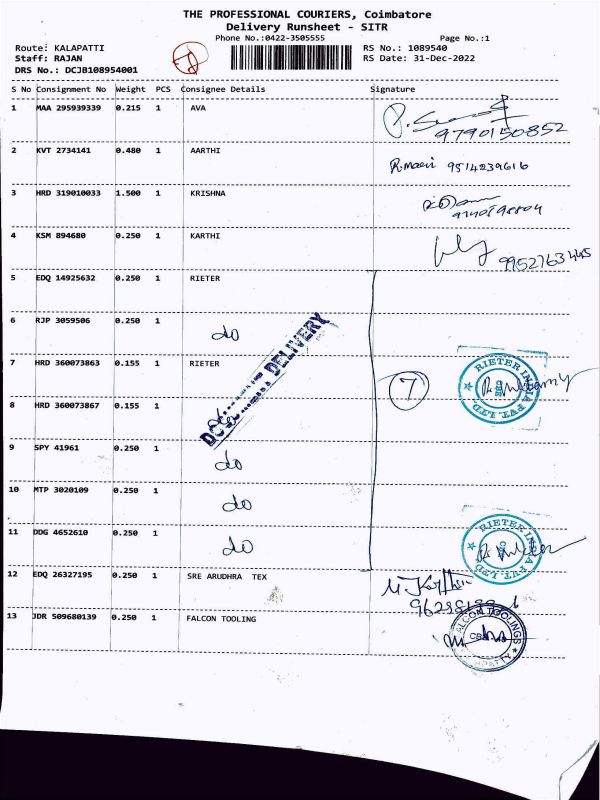 THE PROFESSIONAL COURIERS, Coimbatore
Delivery Runsheet - SITR
Phone No.:0422-3505555 Page No.:1
Route: KALAPATTI RS No.: 1089540
Staff: RAJAN RS Date: 31-Dec-2022
DRS No.: DCJB108954001
S No Consignment No Weight PCS Consignee Details Signature
1 MAA 295939339 0.215 1 AVA
9790150852
2 KVT 2734141 0.480 1 AARTHI R.mari 9514239616
3 HRD 319010033 1.500 1 KRISHNA
4 KSM 894680 0.250 1 KARTHI
9952763445
5 EDQ 14925632 0.250 1 RIETER
6 RJP 3059506 0.250 1 do
DOCUMENT DELIVERY
7 HRD 360073863 0.155 1 RIETER 7 RIETER INDIA PVT. LTD
8 HRD 360073867 0.155 1 do
9 SPY 41961 0.250 1 do
10 MTP 3020109 0.250 1 do
11 DDG 4652610 0.250 1 do RIETER INDIA PVT. LTD
12 EDQ 26327195 0.250 1 SRE ARUDHRA TEX
13 JDR 509680139 0.250 1 FALCON TOOLING FALCON TOOLINGS